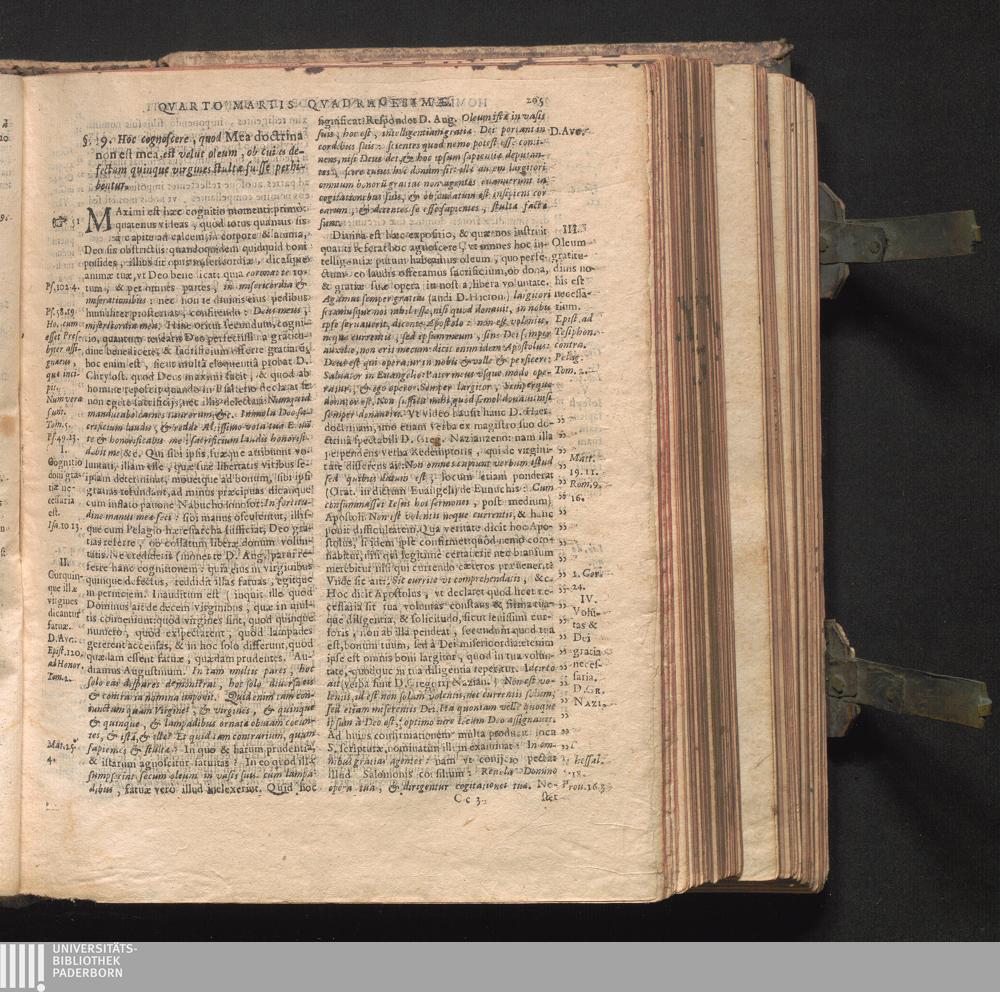 QVARTO MARTIS QVADRAGESIMÆ.
205
§. 9. Hoc cognoscere, quod Mea doctrina
non est mea, est velut oleum, ob cui{us} de-
fectum quinque virgines stultæ fuisse perhi-
bentur.
MAximi est hæc cognitio momenti: primò:
quatenus videas, quod totus quantus sis
à capite ad calcem, in corpore & anima,
Deo sis obstrictus: quandoquidem quidquid boni
possides, illius sit opus misericordiæ, dicasque
animæ tuæ, vt Deo benedicat: qui coronat te to-
tum, & per omnes partes, in misericordia &
miserationibus: nec non te diuinis eius pedibus
humiliter prosternas, confitendo: Deus meus,
misericordia mea. Hinc oritur secundum, cogni-
tio, quantum tenearis Deo perfectissimâ gratitu-
dine benedicere, & sacrificium offerre gratum:
hoc enim est, sicut multâ eloquentiâ probat D.
Chrysost. quod Deus maximi facit, & quod ab
homine reposcit: quando in Psalterio declarat se
non egere sacrificijs, nec illis delectari: Numquid
manducabo carnes taurorum, &c. Immola Deo sa-
crificium laudis, & redde Altissimo vota tua. Erua
te & honorificabis me: sacrificium laudis honorifi-
cabit me, &c. Qui sibi ipsis, suæque attribuunt vo-
luntati, illam esse, quæ suæ libertatis viribus se-
ipsam determinat, mouetque ad bonum, sibi ipsi
gratias refundant, ad minus præcipuas: dicantque
cum inflato pauone Nabuchodonosor: In fortitu-
dine manus meæ feci: sibi manus osculentur, illis-
que cum Pelagio hæresiarcha sufficiat, Deo gra-
tias referre, ob collatum liberæ donum volun-
tatis. Ne credideris (monet te D. Aug.) parui re-
ferre hanc cognitionem: quia eius in virginibus
quinque defectus, reddidit illas fatuas, egitque
in perniciem. Inauditum est (inquit ille) quod
Dominus ait de decem virginibus, quæ in mul-
tis conueniunt: quod virgines sint, quod quinque
numero, quòd exspectarent, quòd lampades
gererent accensas, & in hoc solo differunt, quod
quædam essent fatuæ, quædam prudentes. Au-
diamus Augustinum. In tam multis pares, hoc
solo eas dispares demonstrat, hoc solo diuersa eis
& contraria nomina imponit. Quid enim tam con-
iunctum quàm Virgines, & virgines, & quinque
& quinque, & lampadibus ornatæ obuiam coëun-
tes, & ista, & illæ? Et quid tam contrarium, quàm
sapientes & stultæ? In quo & harum prudentia,
& istarum agnoscitur fatuitas? In eo quod illæ
sumpserint secum oleum in vasis suis cum lampa-
dibus, fatuæ verò illud neglexerint. Quid hoc
☞ 51
Ps. 102.4.
Ps. 58.19.
Ho. cum
esset Pres-
byter assi-
gnatus,
que inci-
pit,
Num vera
sunt.
Tom. 5.
Ps. 49.23.
I.
Cognitio
doni gra-
tiæ ne-
cessaria
est.
Isa. 10 13.
II.
Cur quin-
que illæ
virgines
dicantur
fatuæ.
D. Avg.
Epist. 120.
ad Honor.
Tom. 2.
Mat. 25.
4.
significat? Respondet D. Aug. Oleum istæ in vasis
suis, hoc est, intelligentiam gratiæ Dei portant in
cordibus suis: scientes quod nemo potest esse conti-
nens, nisi Deus det, & hoc ipsum sapientiæ deputan-
tes, scire cuius hoc donum sit: illæ autem largitori
omnium bonorū gratias non agentes euanuerunt in
cogitationibus suis, & obscuratum est insipiens cor
earum, & dicentes se esse sapientes, stultæ factæ
sunt.
Diuina est hæc expositio, & quæ nos instruit
quanti referat hoc agnoscere, vt omnes hoc in-
telligentiæ putam habeamus oleum, quo perfe-
ctum eo laudis offeramus sacrificium, ob dona,
& gratiæ suæ opera in nostra libera voluntate.
Agamus semper gratias (audi D. Hieron.) largitori
sciamusque nos nihil esse, nisi quod donauit, in nobis
ipse seruauerit, dicente Apostolo: non est volentis,
neque currentis, sed ipsum meum, sine Dei semper
auxilio, non erit meum: dicit enim idem Apostolus:
Deus est qui operatur in nobis & velle & perficere:
Saluator in Euangelio: Pater meus vsque modo ope-
ratur, & ego operor. Semper largitor, semperque
donator est. Non sufficit mihi, quod semel donauit nisi
semper donauerit. Vt video hausit hanc D. Hier.
doctrinam, imò etiam verba ex magistro suo do-
ctrina spectabili D. Greg. Nazianzeno: nam illa
perpendens verba Redemptoris, qui de virgini-
tate differens ait: Non omnes capiunt verbum istud
sed quibus datum est, locum etiam ponderat
(Orat. in dictum Euangelij de Eunuchis: Cum
consummasset Iesus hos sermones, post medium)
Apostoli: Non est volentis neque currentis, & hanc
ponit difficultatem. Qua veritate dicit hoc Apo-
stolus, si idem ipse confirmet quòd nemo coro-
nabitur, nisi qui legitimè certat: et nec brauium
merebitur nisi qui currendo cæteros præuenerit?
Vnde sic ait: Sic currite vt comprehendatis, &c.
Hoc dicit Apostolus, vt declaret quod licet ne-
cessaria sit tua voluntas constans & firma: tua-
que diligentia, & solicitudo, sicut leuissimi cur-
soris, non ab illa pendeat, secundum quod tua
est, bonum tuum, sed à Dei misericordia: etenim
ipse est omnis boni largitor, quod in tua volun-
tate, quodque in tua diligentia reperitur. Idcirco
ait (verba sunt D. Gregorij Nazian.) Non est vo-
lentis, id est non solum volentis, nec currentis solum,
sed etiam miserentis Dei. Ita quoniam velle quoque
ipsum à Deo est, optimo iure totum Deo assignauit.
Ad huius confirmationem multa producit loca
S. scripturæ, nominatim illum examinat: In om-
nibus gratias agentes: nam vt conijcio pectat
illud Salomonis consilium: Reuela Domino
opera tua, & dirigentur cogitationes tuæ. No-
D. Avg.
III.
Oleum
gratitu-
dinis no-
bis est
necessa-
rium.
Epist. ad
Tesiphon.
contra.
Pelag.
Tom. 2.
Matt.
19. 11.
Rom. 9,
16.
1. Cor.
24.
IV.
Volū-
tas &
Dei
gratia
necef-
saria.
D. Gr.
Nazi,
1. Thessal.
5. 18.
Prou. 16. 3
Cc 3
ster
UNIVERSITÄTS-
BIBLIOTHEK
PADERBORN